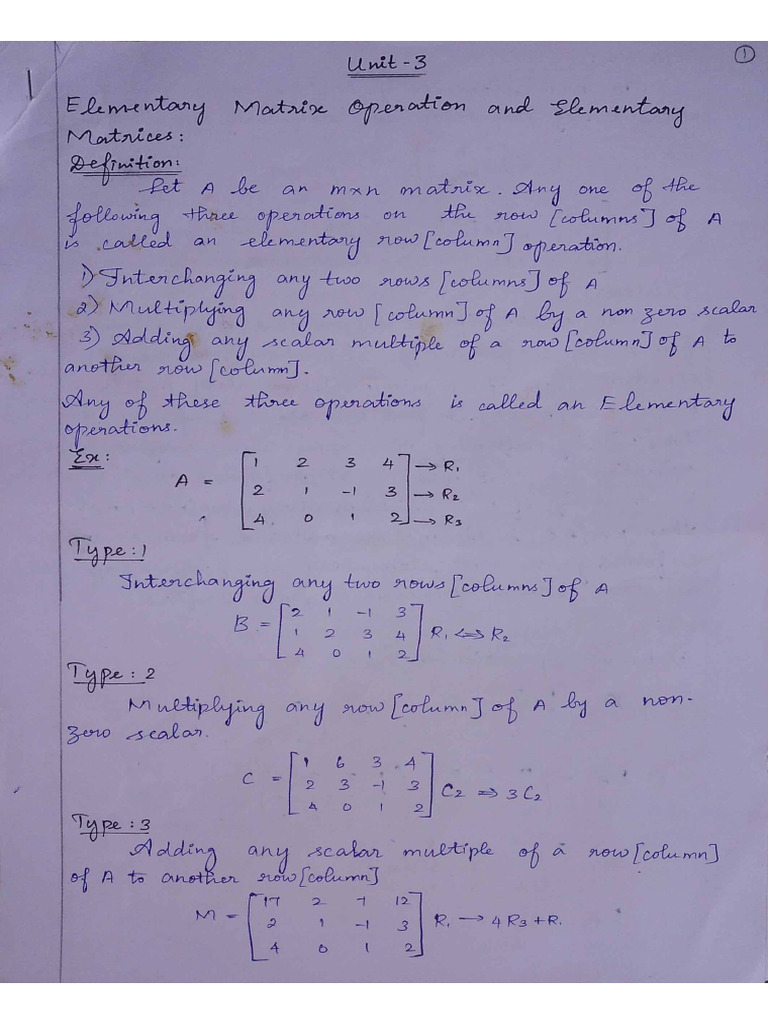 1
Unit-3
Elementary Matrix Operation and Elementary
Matrices:
Definition:
Let A be an m×n matrix. Any one of the
following three operations on the row [columns] of A
is called an elementary row [column] operation.
1) Interchanging any two rows [columns] of A
2) Multiplying any row [column] of A by a non zero scalar
3) Adding any scalar multiple of a row [column] of A to
another row [column].
Any of these three operations is called an Elementary
operations.
Ex:
A = [1 2 3 4] → R1
2 1 -1 3 → R2
4 0 1 2 → R3
Type:1
Interchanging any two rows [columns] of A
B = [2 1 -1 3]
1 2 3 4 R1 ⇔ R2
4 0 1 2
Type: 2
Multiplying any row [column] of A by a non-
zero scalar.
C = [1 6 3 4]
2 3 -1 3 C2 ⇒ 3C2
4 0 1 2
Type:3
Adding any scalar multiple of a row [column]
of A to another row [column]
M = [17 2 7 12]
2 1 -1 3 R1 → 4R3+R1
4 0 1 2